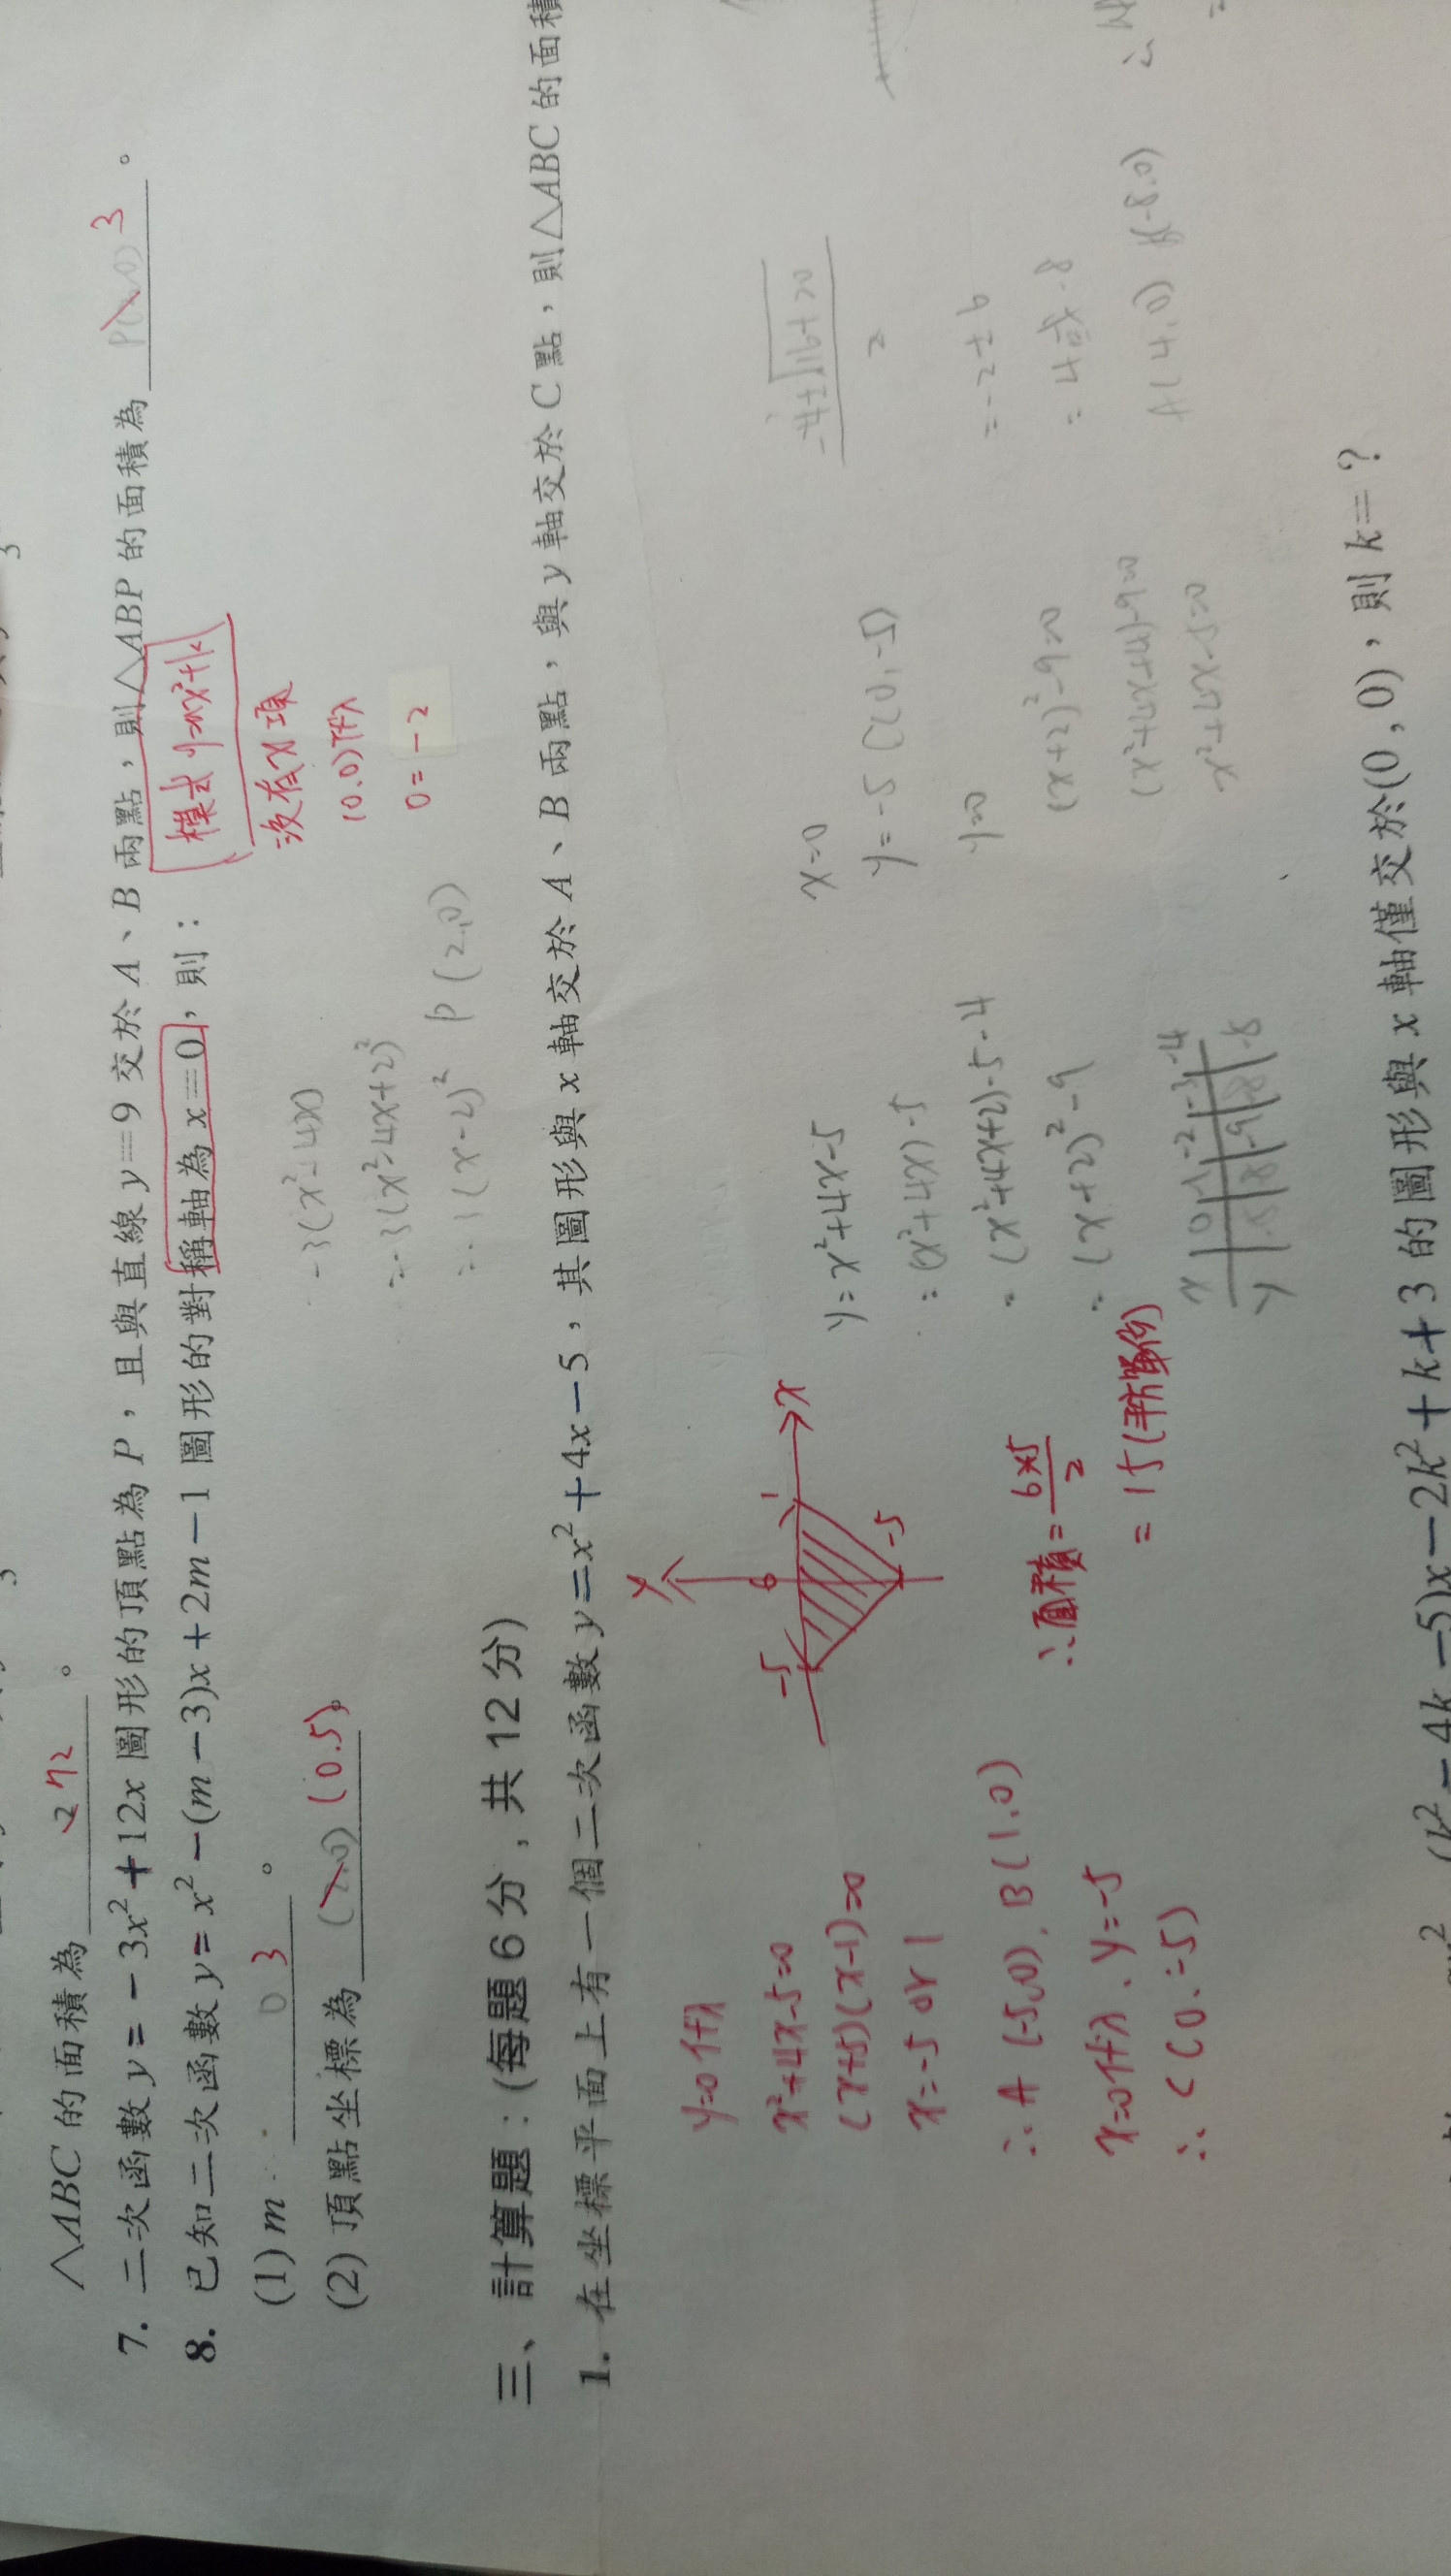 △ABC 的面積為 27
2
。
7. 二次函數 y=-3x²+12x 圖形的頂點為 P，且與直線 y=9 交於 A、B 兩點，則△ABP 的面積為 3 。
8. 已知二次函數 y=x²-(m-3)x+2m-1 圖形的對稱軸為 x=0，則：
模式 y=ax²+k
沒有x項
(0.0)代入
0=-2
(1) m 0 3 。
(2) 頂點坐標為 (0.5)。
-3(x²-4x)
=-3(x²-4x+2)²
=-3(x-2)² P(2,0)
三、計算題：(每題 6 分，共 12 分)
1. 在坐標平面上有一個二次函數 y=x²+4x-5，其圖形與 x 軸交於 A、B 兩點，與 y 軸交於 C 點，則△ABC 的面積
y=0代入
x²+4x-5=0
(x+5)(x-1)=0
x=-5 or 1
∴ A (-5,0). B(1.0)
x=0代入. y=-5
∴ C(0.-5)
y
x
-5
0
1
-5
∴面積=6×5
2
=15(平方單位)
y=x²+4x-5
=(x²+4x)-5
=(x²+4x+2)-5-4
=(x+2)²-9
x 0 -1 -2 -3 -4
y -5 -8 -9 -8 -5
x=0
y=-5 C(0,-5)
y=0
(x+2)²-9=0
(x²+4x+4)-9=0
x²+4x-5=0
-4±√16+20
2
=-2±6
=4或-8
A(4,0) B(-8,0)
(k²-4k-5)x-2k²+k+3 的圖形與 x 軸僅交於(0,0)，則 k=？